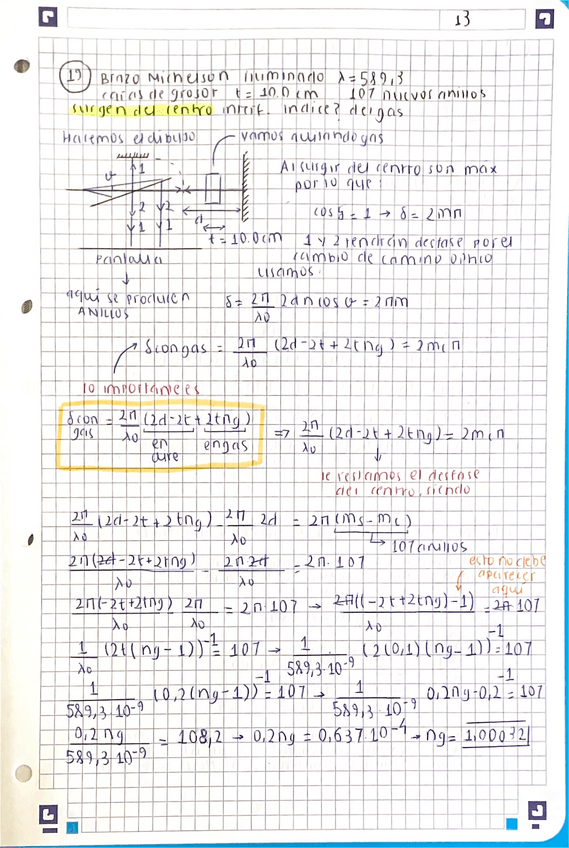 13
19 Brazo Michelson iluminado λ=589,3
cajas de grosor t=10.0cm 107 nuevos anillos
surgen del centro interf. indice? de gas
Hacemos el dibujo
vamos aulandogas
Al surgir del centro son max
por lo que:
cos δ = 1 → δ = 2mπ
1
2 2
1 1
d
t = 10.0cm
1 y 2 tendrán desfase por el
cambio de camino óptico
usamos:
Pantalla
aquí se producen
ANILLOS
δ = 2π/λ0 2dn cos θ = 2πm
δcongas = 2π/λ0 (2d-2t+2tng) = 2mcπ
lo importante es
δcon gas = 2π/λ0 (2d-2t+2tng) ⇒ 2π/λ0 (2d-2t+2tng) = 2mcπ
en aire en gas
le restamos el desfase
del centro, siendo
2π/λ0 (2d-2t+2tng) - 2π/λ0 2d = 2π(ms-mc)
107 anillos
2π(2d-2t+2tng)/λ0 - 2π2d/λ0 = 2π·107
esto no debe
aparecer
aquí
2π(-2t+2tng)/λ0 2π/λ0 = 2π·107 → 2π((-2t+2tng)-1)/λ0 = 2π 107
1/λ0 (2t(ng-1))-1 = 107 → 1/589,3·10-9 (2(0,1)(ng-1))-1 = 107
1/589,3·10-9 (0,2(ng-1))-1 = 107 → 1/589,3·10-9 0,2ng-0,2-1 = 107
0,2ng/589,3·10-9 = 108,2 → 0,2ng = 0,637·10-4 → ng = 1,00032